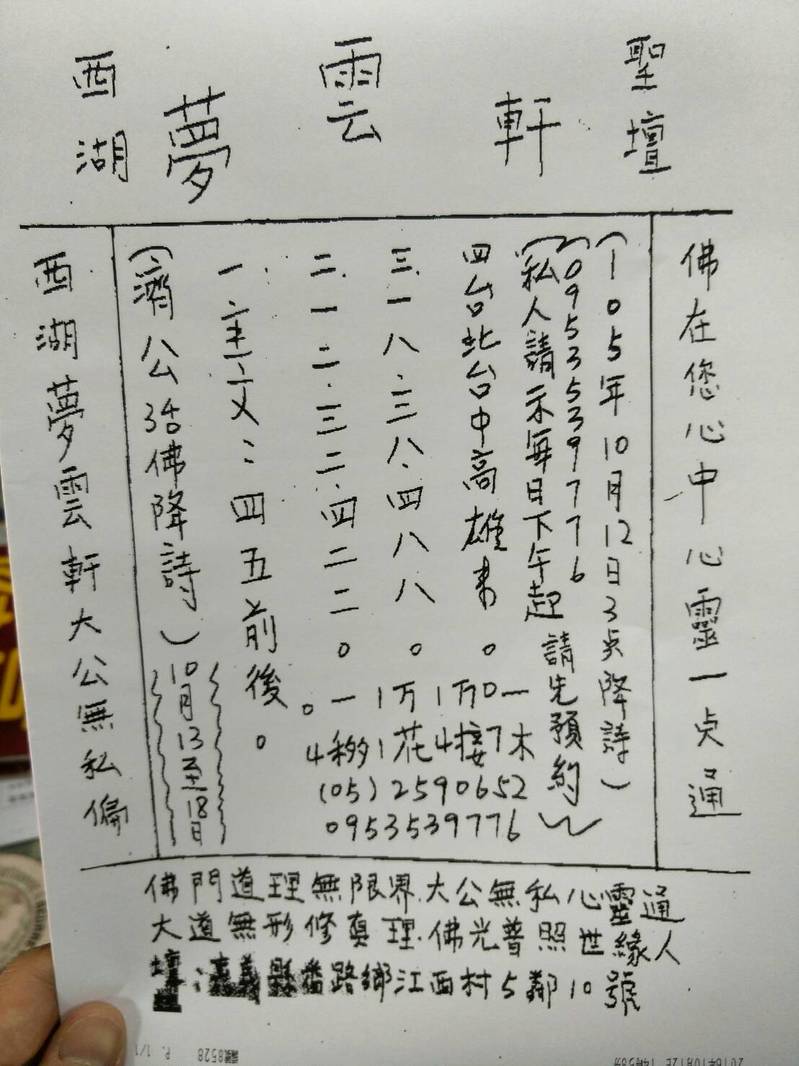 西湖 夢雲軒 聖壇
佛在您心中心靈一点通
(105年10月12日3点降詩)
0953539776
(私人請示每日下午起請先預約)
四台北台中高雄來。
三.一八.三八.四八八。
二.一二.三二.四二二。
一.主文:四五前後。
(濟公活佛降詩)
10月13至18日
(05)2590652
0953539776
西湖夢雲軒大公無私偏
佛門道理無限界.大公無私心靈通
大道無形修真理.佛光普照世緣人
壇:嘉義縣番路鄉江西村5鄰10號
P. 1/1